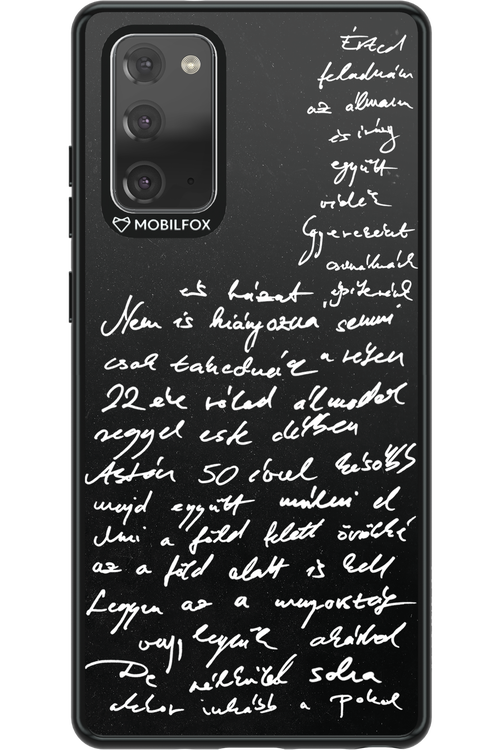 Érted
feladnám
az álmam
és így
együtt
vidék
Gyerekeket
csinálnánk
és házat építenénk
Nem is hiányozna semmi
csak takednák a részen
22 éve rólad álmodok
reggel este délben
Aztán 50 évvel később
majd együtt múlni el
Ami a föld felett örökké
az a föld alatt is kell
Legyen az a mennyország
vagy legyünk akárhol
De nélküled soha
akkor inkább a pokol
MOBILFOX